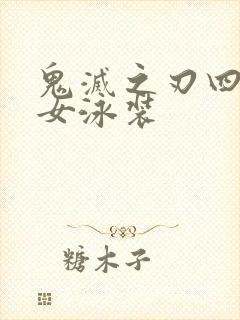 鬼滅之刃四
女泳裝
糖木子